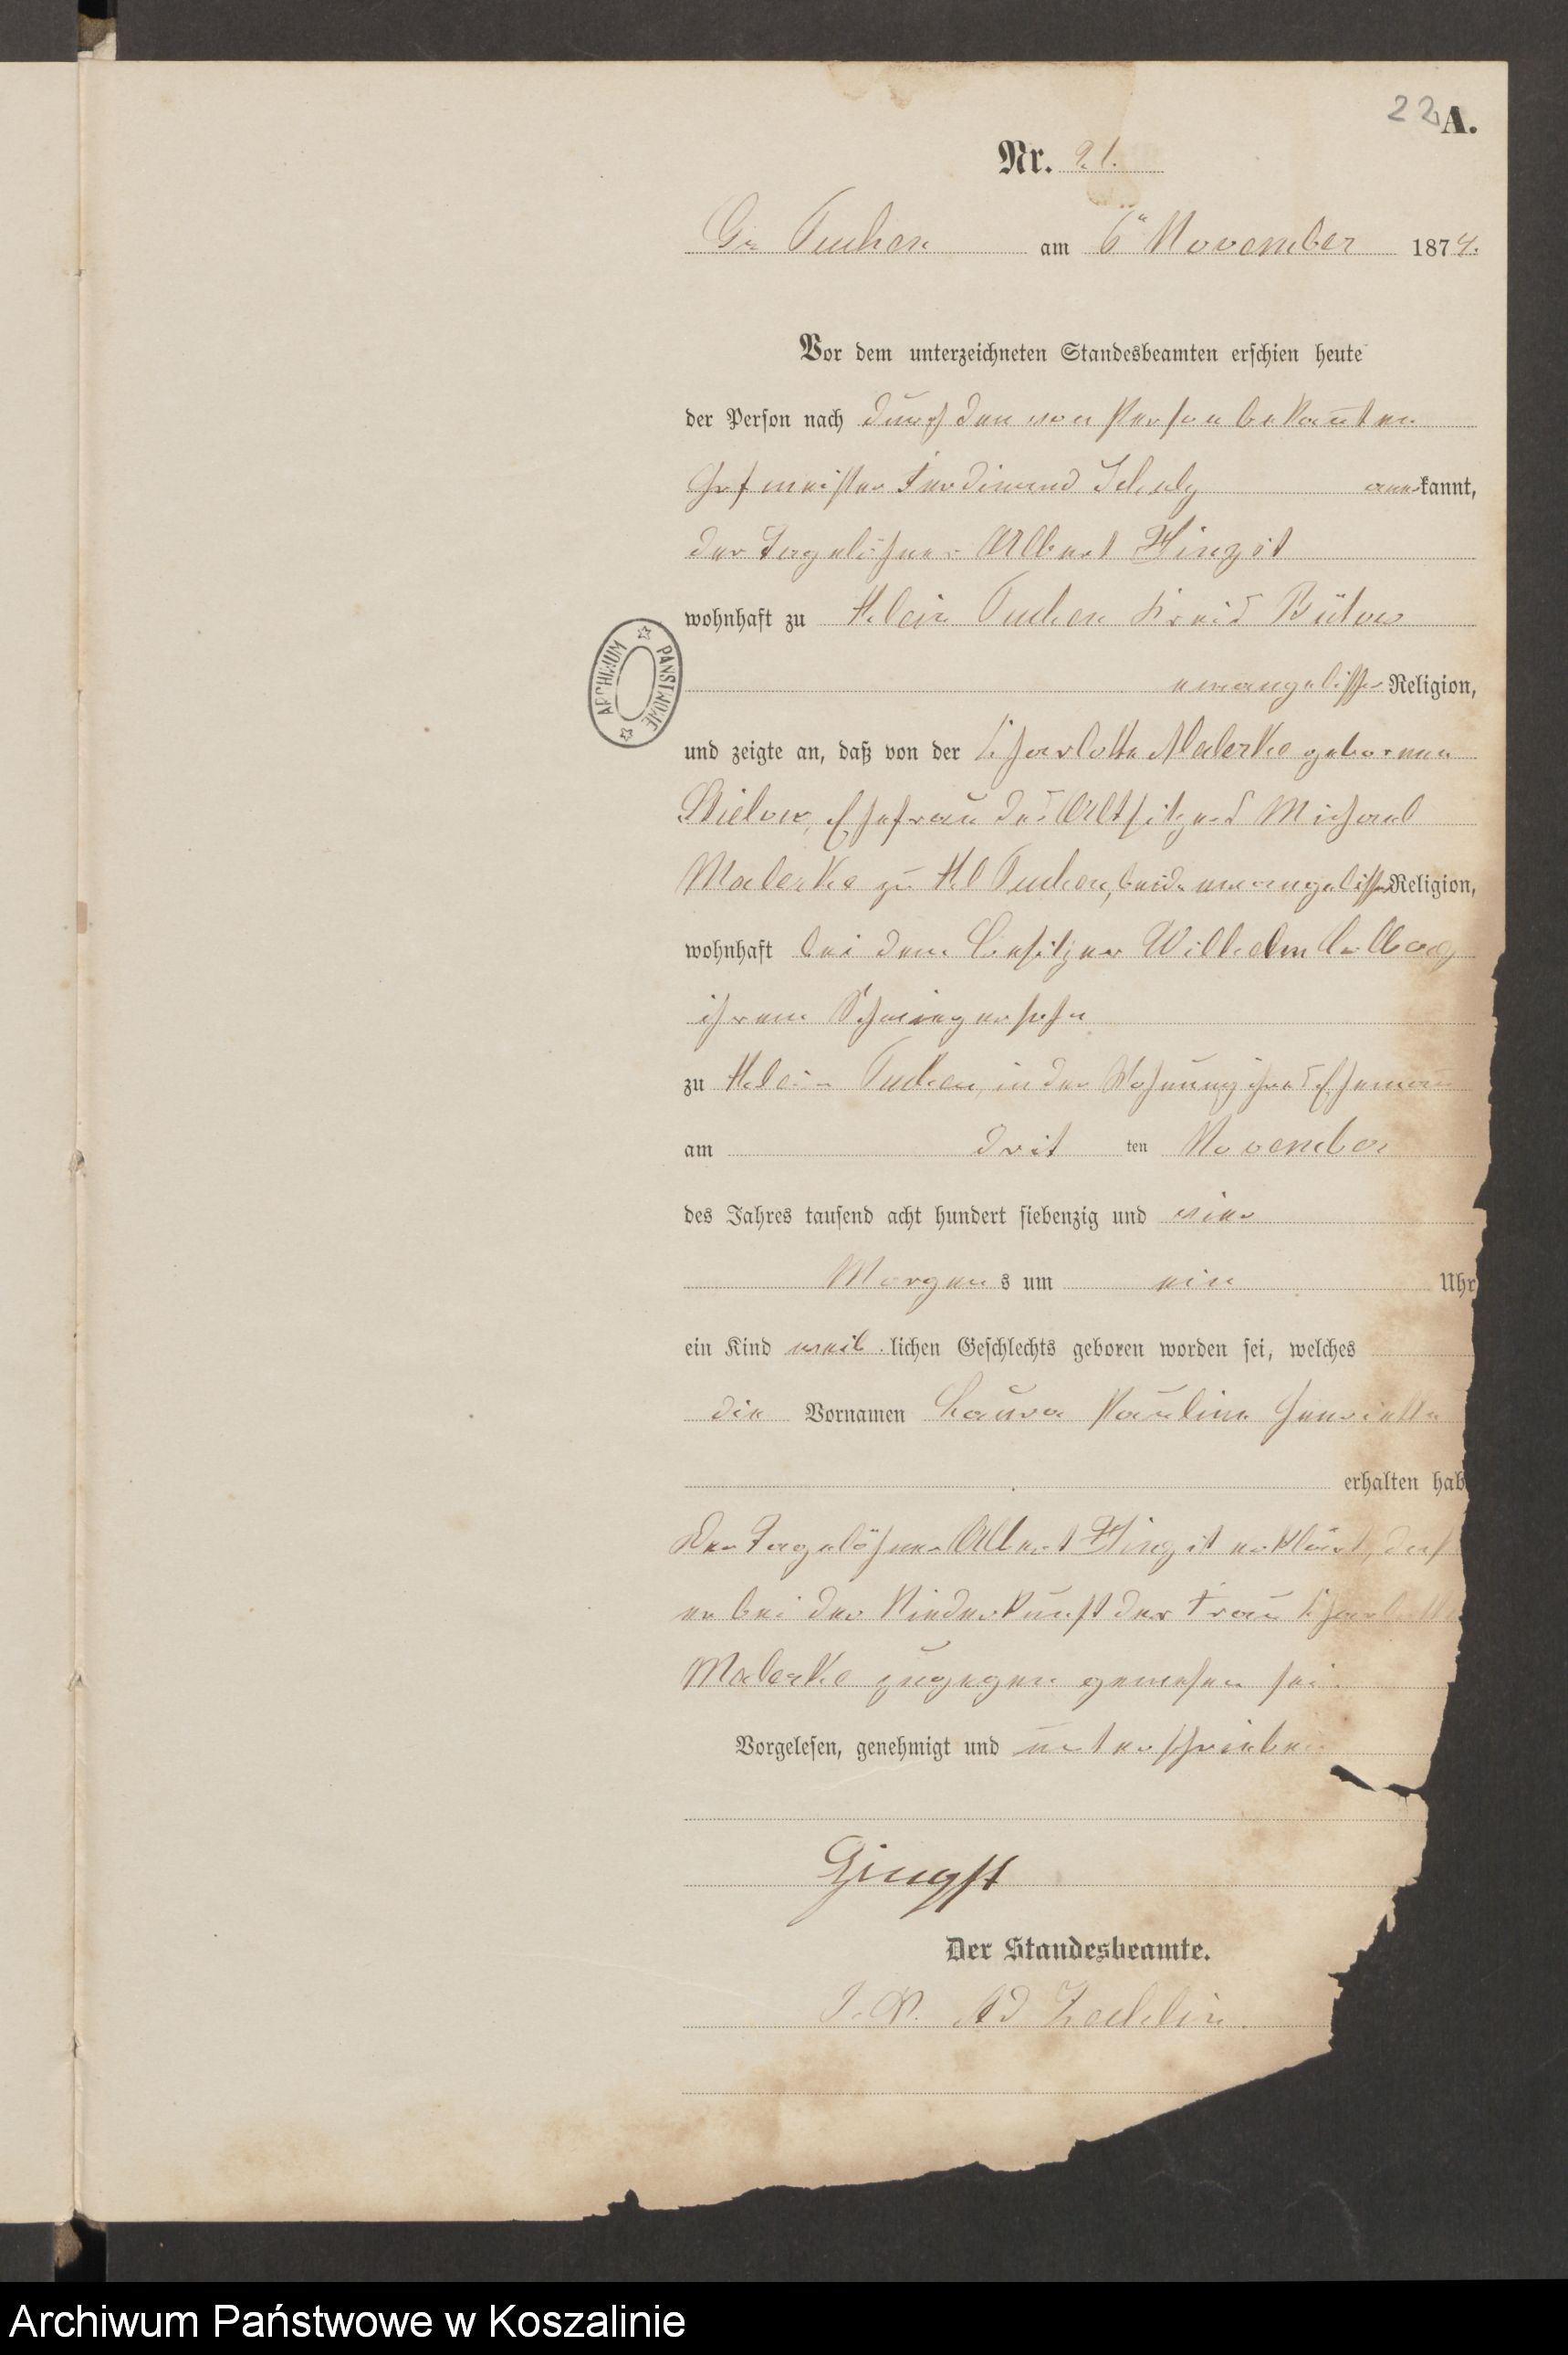 22 A.
Nr. 21.
Gr Tuchen am 6ten November 1874.
Vor dem unterzeichneten Standesbeamten erschien heute
der Person nach durch den von Person bekannten
Hofmeister Ferdinand Schulz anerkannt,
der Tagelöhner Albert Hingst
wohnhaft zu Klein Tuchen Kreis Bütow
evangelischer Religion,
und zeigte an, daß von der Charlotte Malerke geborenen
Stielow, Ehefrau des Altsitzers Michael
Malerke zu Kl Tuchen, beide evangelischer Religion,
wohnhaft bei dem Besitzer Wilhelm
ihrem Schwiegersohn
zu Klein Tuchen, in der Wohnung ihres Eheman
am drit ten November
des Jahres tausend acht hundert siebenzig und vier
Morgens um ein Uhr
ein Kind weib lichen Geschlechts geboren worden sei, welches
die Vornamen Laura Pauline Henriette
erhalten hab
Der Tagelöhner Albert Hingst erklärt, daß
er bei der Niederkunft der Frau Charlotte
Malerke zugegen gewesen sei.
Vorgelesen, genehmigt und unterschrieben
Hingst
Der Standesbeamte.
I. V. Ad Zechlin.
ARCHIWUM PAŃSTWOWE
Archiwum Państwowe w Koszalinie